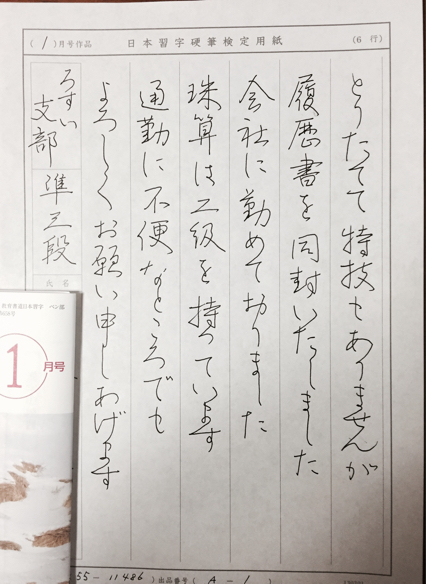 (1)月号作品 日本習字硬筆検定用紙 (6行)
とりたてて特技もありませんが
履歴書を同封いたしました
会社に勤めておりました
珠算は二級を持っています
通勤に不便なところでも
よろしくお願い申しあげます
ろすい
支部
準三段
氏名
1月号
55-11486)出品番号(A-1)